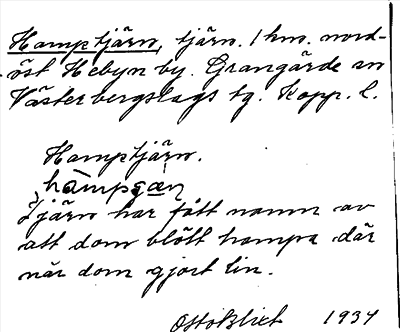 Hamptjärn, tjärn. 1 km. nord-
öst Hebyn by. Grangärde sn
Västerbergslags tg. Kopp. l.
Hamptjärn.
Tjärn har fått namn av
att dom blött hampa där
när dom gjort lin.
Otto Blixt 1934